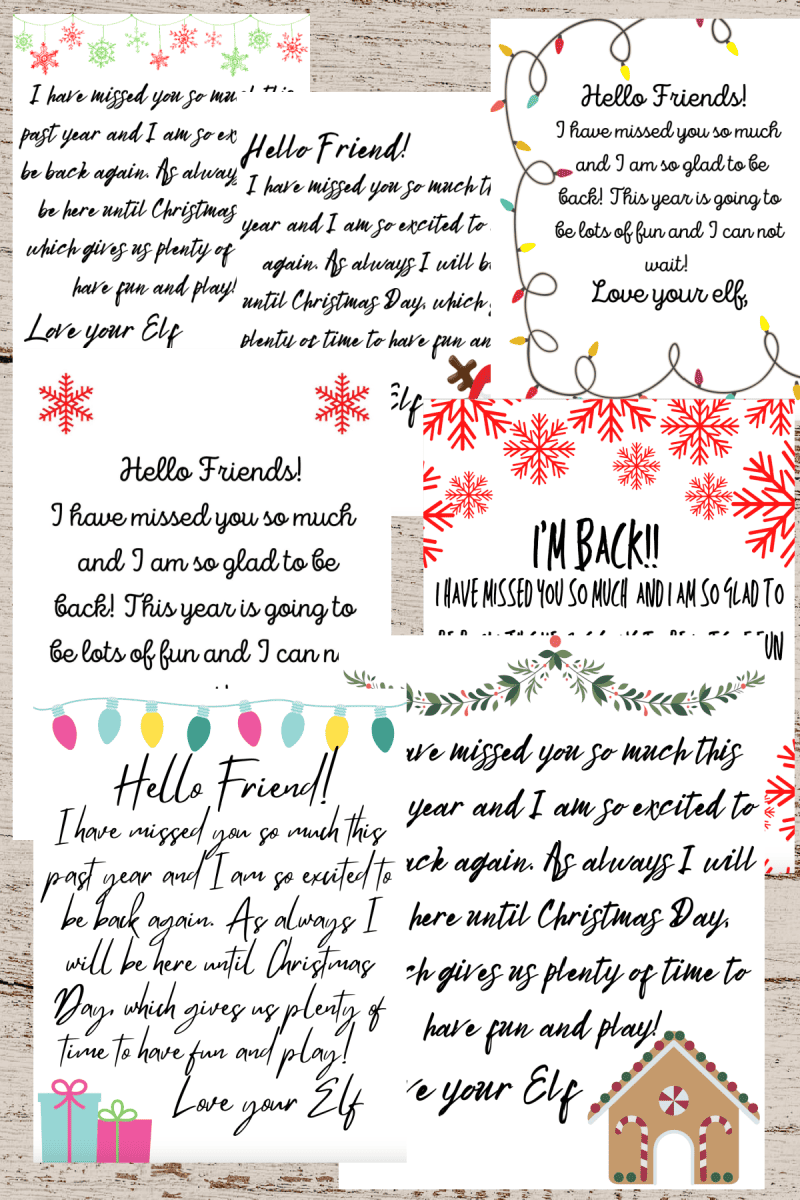 I have missed you so much this
past year and I am so ex
be back again. As alway
be here until Christmas
which gives us plenty of
have fun and play!
Love your Elf
Hello Friend!
I have missed you so much t
year and I am so excited to
again. As always I will b
until Christmas Day, which
plenty of time to have fun an
Elf
Hello Friends!
I have missed you so much
and I am so glad to be
back! This year is going to
be lots of fun and I can not
wait!
Love your elf,
Hello Friends!
I have missed you so much
and I am so glad to be
back! This year is going to
be lots of fun and I can n
I'M BACK!!
I HAVE MISSED YOU SO MUCH AND I AM SO GLAD TO
FUN
Hello Friend!
I have missed you so much this
past year and I am so excited to
be back again. As always I
will be here until Christmas
Day, which gives us plenty of
time to have fun and play!
Love your Elf
ave missed you so much this
year and I am so excited to
ack again. As always I will
here until Christmas Day,
ch gives us plenty of time to
have fun and play!
ve your Elf